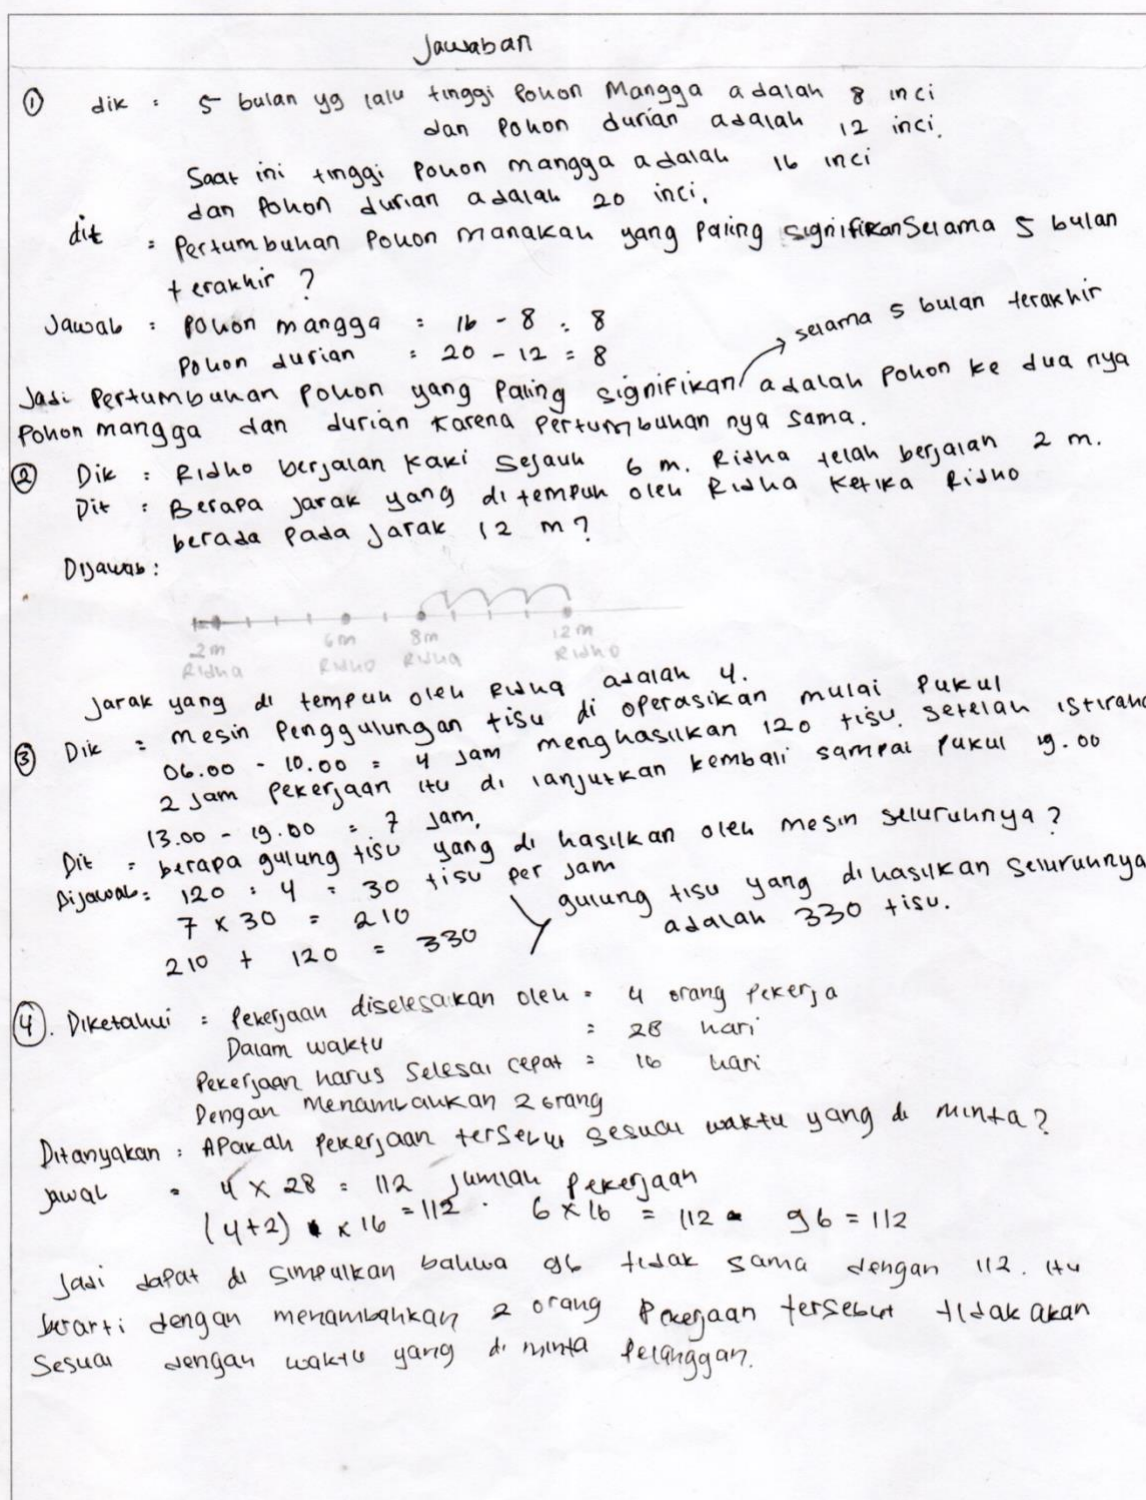 Jawaban
① dik : 5 bulan yg lalu tinggi Pohon Mangga adalah 8 inci
dan Pohon durian adalah 12 inci.
Saat ini tinggi Pohon mangga adalah 16 inci
dan Pohon durian adalah 20 inci.
dit : Pertumbuhan Pohon manakah yang Paling signifikan Selama 5 bulan
terakhir ?
Jawab : Pohon mangga : 16 - 8 : 8
Pohon durian : 20 - 12 = 8
selama 5 bulan terakhir
Jadi Pertumbuhan Pohon yang Paling signifikan adalah Pohon ke dua nya
Pohon mangga dan durian Karena Pertumbuhan nya sama.
② Dik : Ridho berjalan kaki Sejauh 6 m. Ridha telah berjalan 2 m.
Dit : Berapa Jarak yang di tempuh oleh Ridha Ketika Ridho
berada Pada Jarak 12 m?
Dijawab :
2m 6m 8m 12m
Ridha Ridho Ridha Ridho
Jarak yang di tempuh oleh Ridha adalah 4.
③ Dik : mesin Penggulungan tisu di operasikan mulai Pukul
06.00 - 10.00 = 4 Jam menghasilkan 120 tisu. Setelah istiraha
2 Jam Pekerjaan itu di lanjutkan kembali sampai Pukul 19.00
13.00 - 19.00 = 7 Jam.
Dit : berapa gulung tisu yang di hasilkan oleh mesin seluruhnya ?
Dijawab : 120 : 4 = 30 tisu per Jam
7 x 30 = 210
210 + 120 = 330
gulung tisu yang dihasilkan Seluruhnya
adalah 330 tisu.
④. Diketahui : Pekerjaan diselesaikan oleh = 4 orang Pekerja
Dalam waktu = 28 hari
Pekerjaan harus Selesai cepat = 16 hari
Dengan Menambahkan 2 orang
Ditanyakan : Apakah Pekerjaan tersebut sesuai waktu yang di minta ?
Jawab = 4 x 28 = 112 Jumlah Pekerjaan
(4+2) x 16 = 112 . 6 x 16 = 112 = 96 = 112
Jadi dapat di simpulkan bahwa 96 tidak sama dengan 112. itu
berarti dengan menambahkan 2 orang Pekerjaan tersebut tidak akan
Sesuai dengan waktu yang di minta Pelanggan.